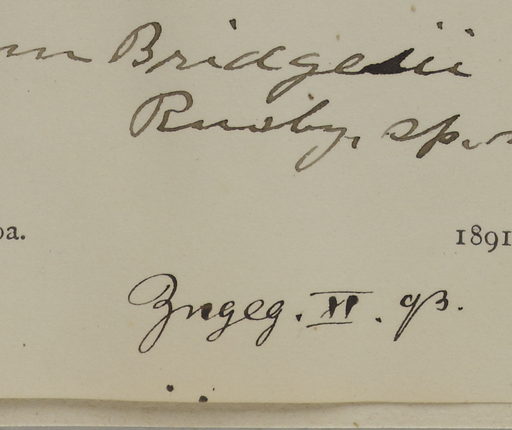 m Bridgesii
Rusby, sp. n
oa. 1891
Zngeg. II. 93.